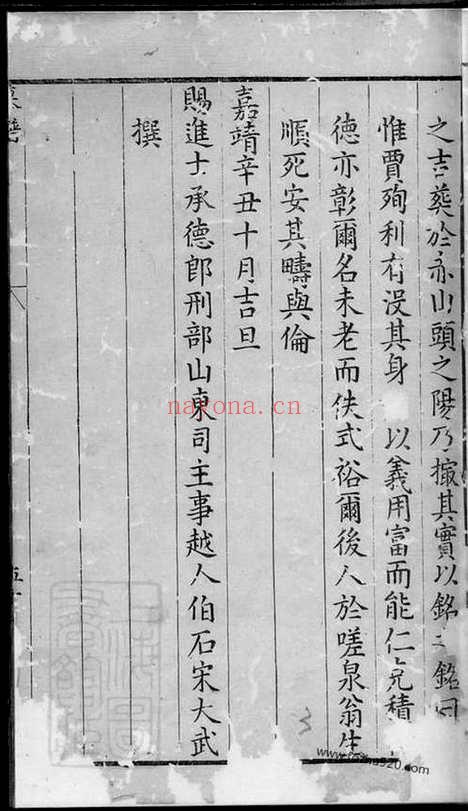 之吉葬於赤山頭之陽乃撮其實以銘之銘曰
惟賈殉利有没其身 以義用富而能仁克積
德亦彰爾名未老而佚式裕爾後人於嗟泉翁生
順死安其疇與倫
嘉靖辛丑十月吉旦
賜進士承德郎刑部山東司主事越人伯石宋大武
撰
nayona.cn